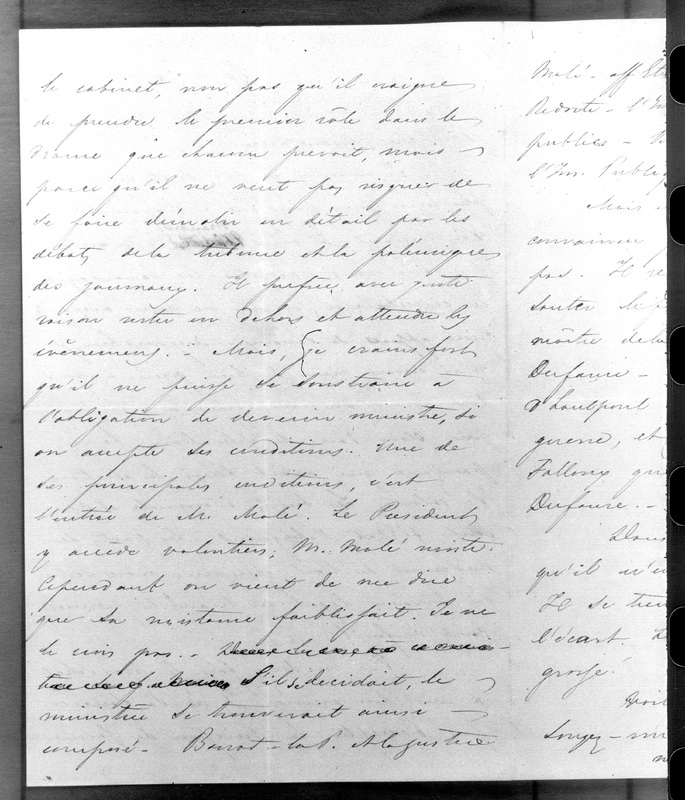 le cabinet, non pas qu'il craigne
de prendre le premier rôle dans le
drame que chacun prevoit, mais
parce qu'il ne veut pas risquer de
se faire démolir en détail par les
débats de la tribune et la polémique
des journaux. Il préfère, avec juste
raison rester en dehors et attendre les
évènemens. - Mais, je crains fort
qu'il ne puisse se soustraire à
l'obligation de devenir ministre, si
on accepte ses conditions. Une de
ses principales conditions, c'est
l'entrée de M. Molé. Le President
y accède volontiers; M. Molé résiste.
Cependant on vient de me dire
que sa resistance faiblissait. Je ne
le crois pas. -
S'il se decidait, le
ministère se trouverait ainsi
composé - Barrot - la P. et la justice
Molé - aff Et
publics -
l'Ins. Publiq
Mais -
pas. Il
sauter le
Dufaure -
d'Hautpoul
guerre, et
Falloux qu
Dufaure. -
Dans
qu'il n'e
Il se
l'écart.
grosse!
Songez -